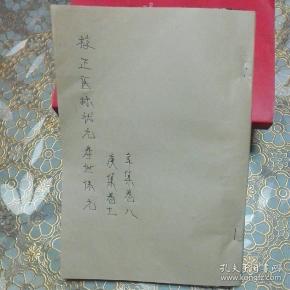 校正医林状元寿世保元
辛集卷八
庚集卷七
孔夫子旧书网